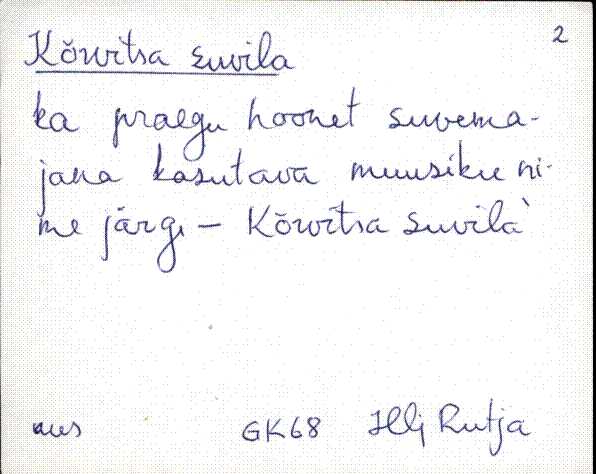 2
Kõrvitsa suvila
ka praegu hoonet suvema-
jana kasutava muusiku ni-
me järgi – Kõrvitsa suvila`
mus GK68 Hlj Rutja